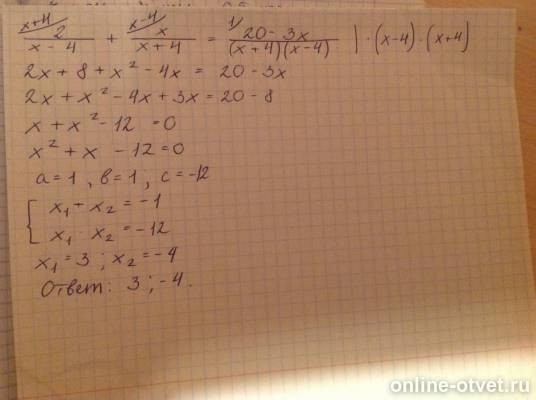 x+4/ x-4/ 1/
2/(x-4) + x/(x+4) = (20-3x)/((x+4)(x-4)) | · (x-4) · (x+4)
2x + 8 + x² - 4x = 20 - 3x
2x + x² - 4x + 3x = 20 - 8
x + x² - 12 = 0
x² + x - 12 = 0
a = 1 , в = 1 , c = -12
{ x₁ + x₂ = -1
x₁ · x₂ = -12
x₁ = 3 ; x₂ = -4
Ответ: 3 ; -4.
online-otvet.ru